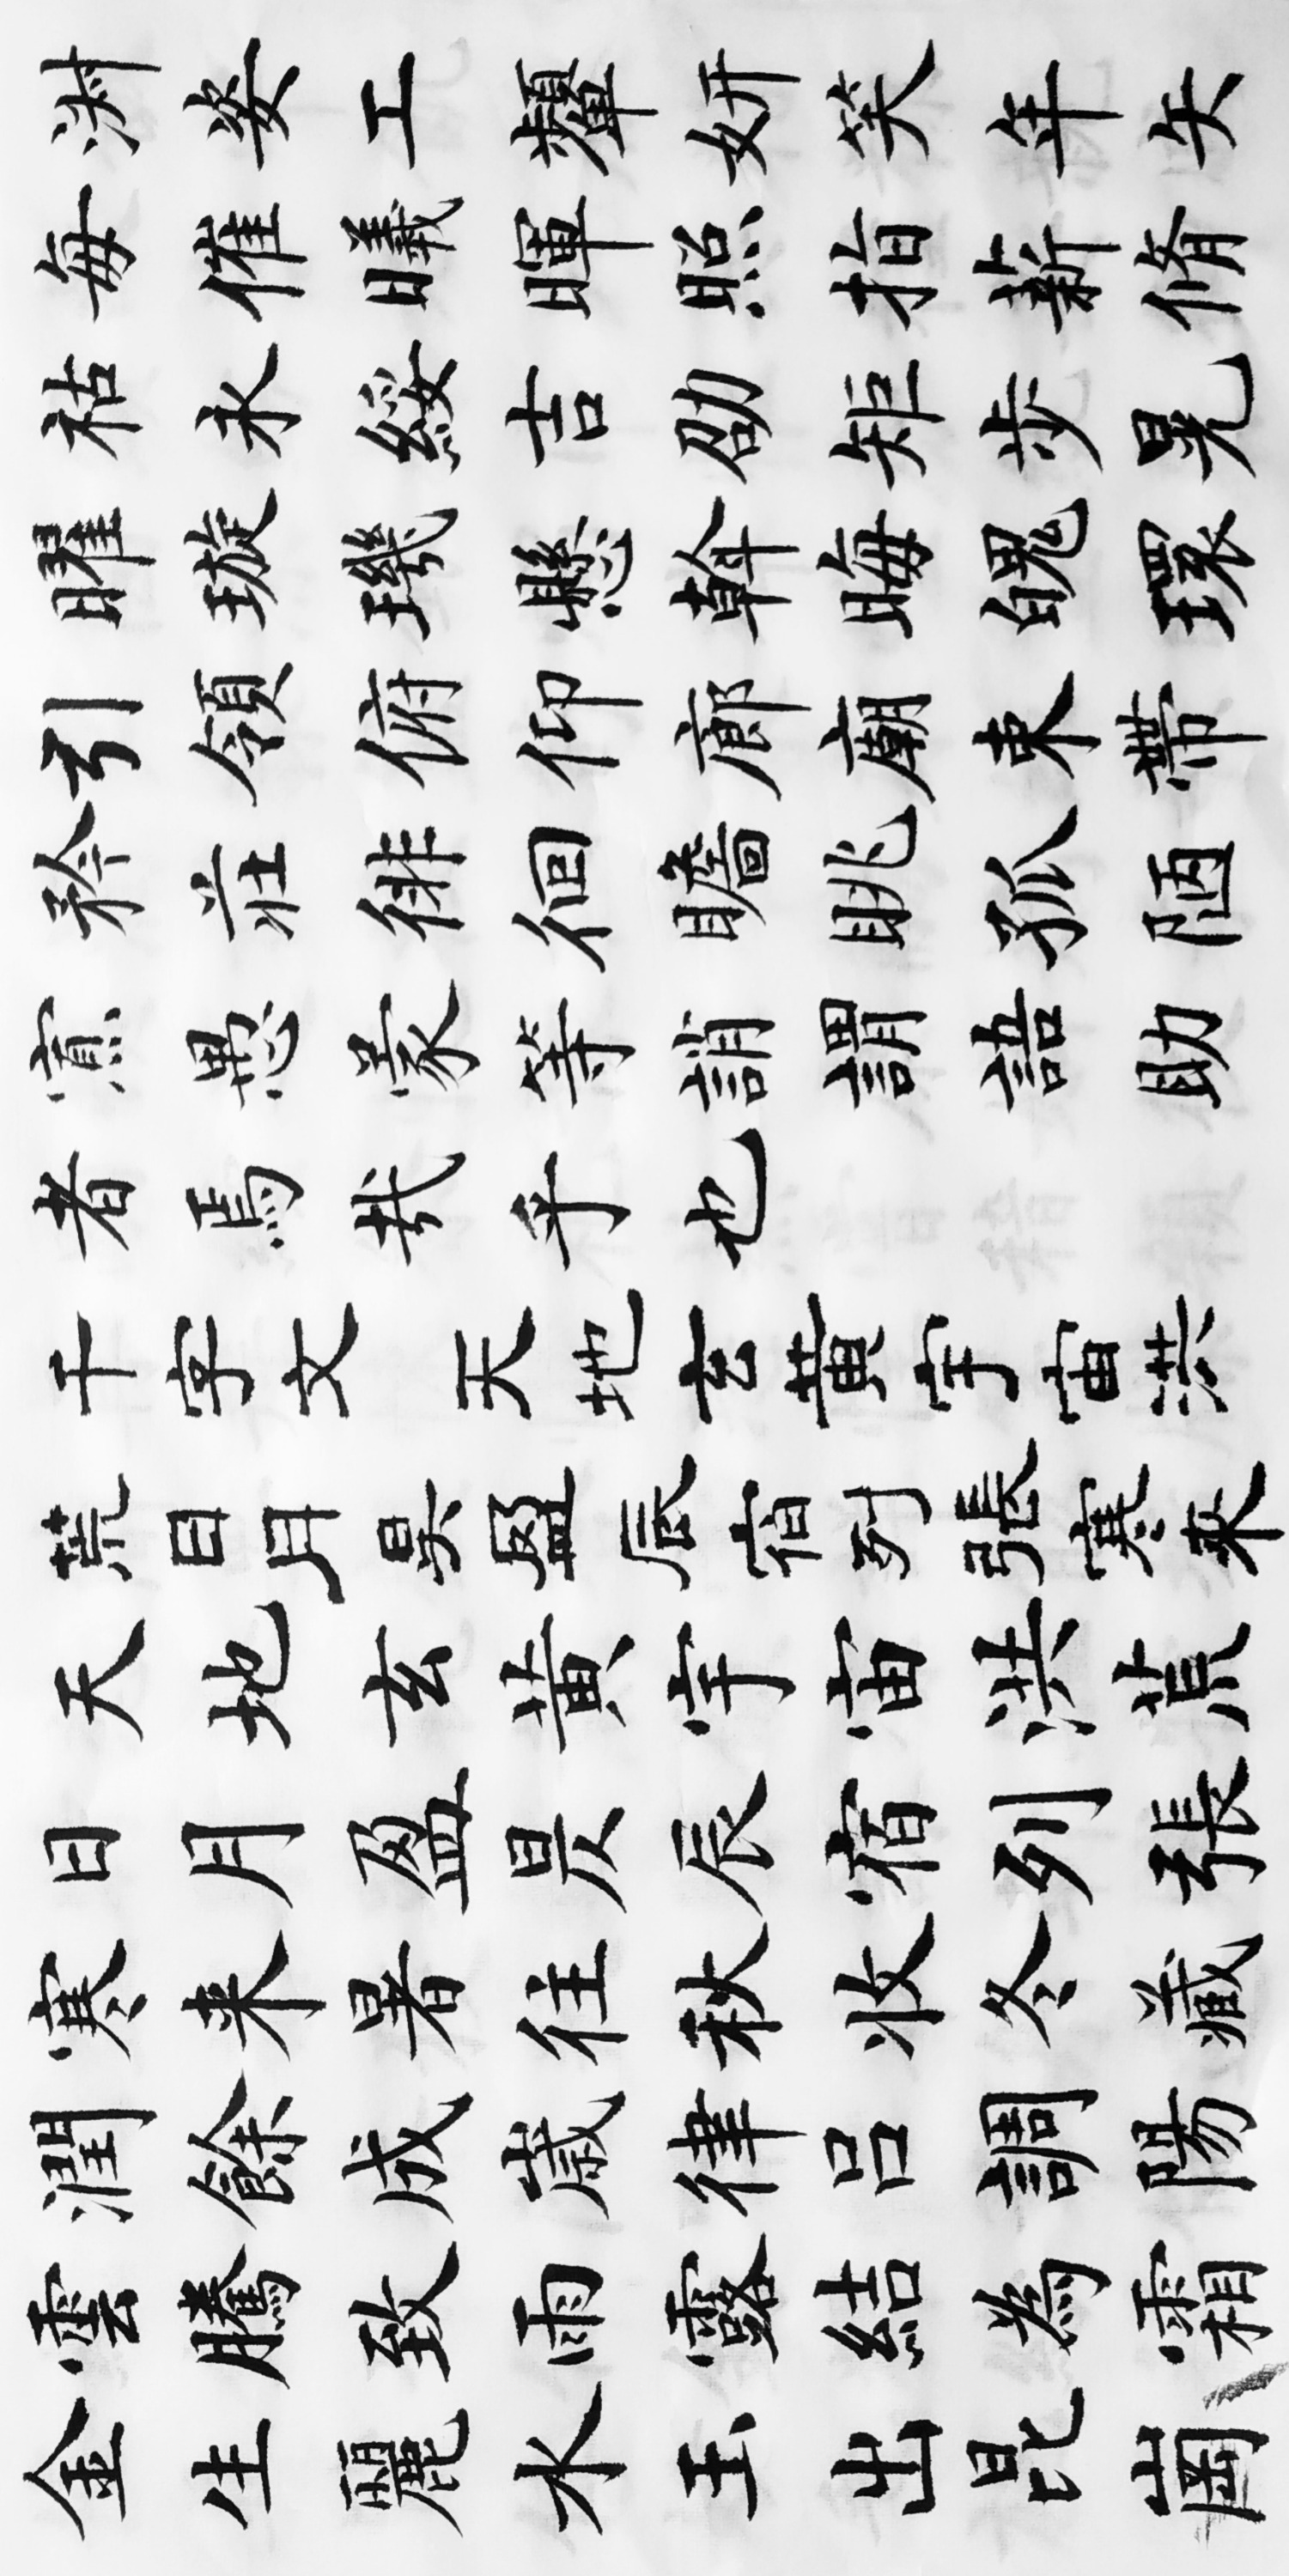 渊姿工顰妍笑年矢
毎催曦暉照指薪脩
祜永綏吉劭矩歩晃
曜璇璣懸斡晦魄環
引領俯仰廊廟束帶
矜莊徘徊瞻眺孤陋
寡愚蒙等誚謂語助
者焉哉乎也
千字文 天地玄黄宇宙洪
荒日月昃盈辰宿列張寒来
天地玄黄宇宙洪荒
日月盈昃辰宿列張
寒来暑往秋收冬藏
潤餘成歳律呂調陽
雲騰致雨露結為霜
金生麗水玉出昆崗